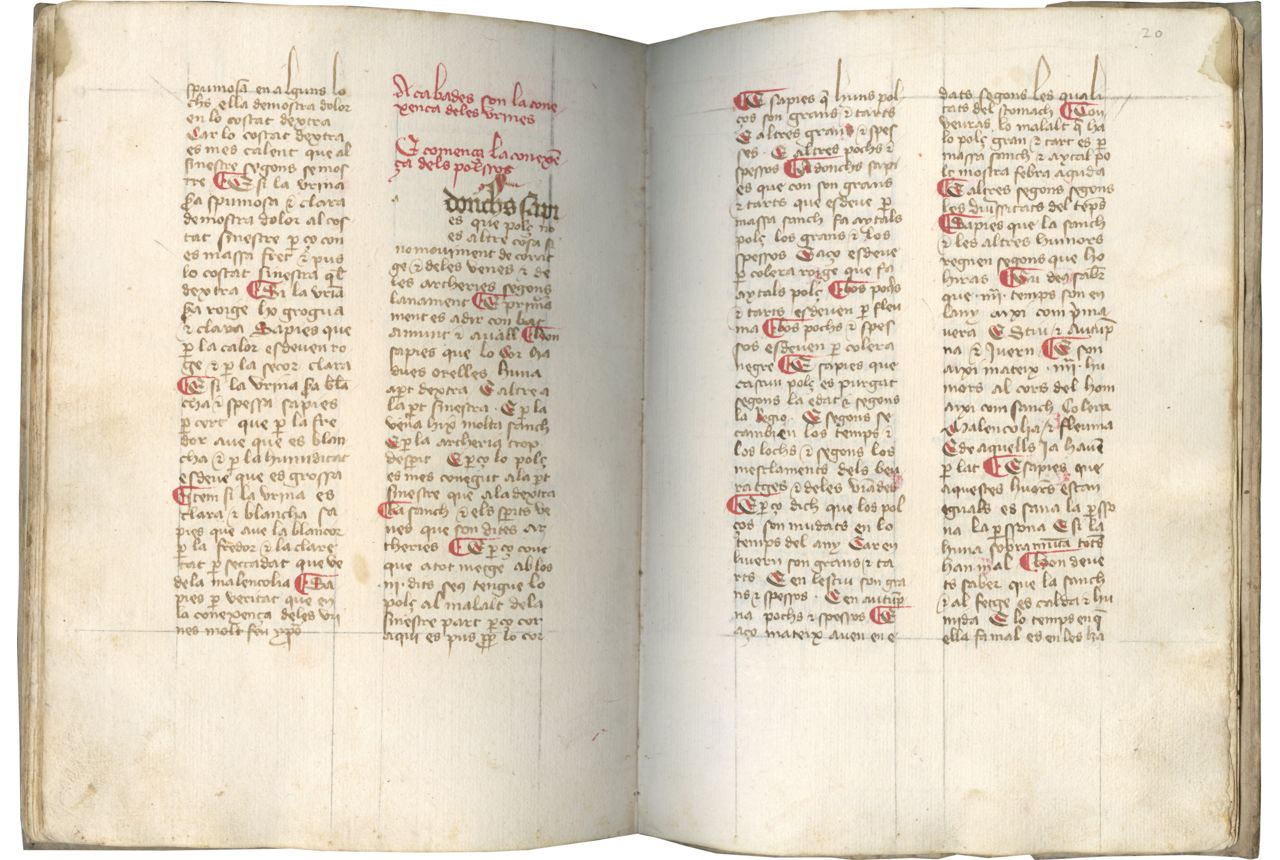 spumosa en alguns lo
chs ella demostra dolor
en lo costat dextra
Car lo costat dextra
es mes calent que al
sinestre segons se mos
tre E si la vrina
sa spumosa & clara
demostra dolor al cos
tat sinestre p ço con
es massa fret & pus
lo costat sinestra q̄l
dextra E si la vrīa
sa roige hx grogua
& clara Sapies que
p la calor esdeven ro
ge & p la secor clara
E si la vrina sa blā
cha & spessa sapies
p cert que p la fre
dor aue que es blan
cha & p la humiditat
esdeue que es grossa
Item si la vrina es
clara & blancha sa
pies que aue la blancor
p la fredor & la clare
tat p seccadat que ve
de la malencolia Sa
pies p veritat que en
la conexença deles vri
nes molt feu yp̄s
Acabades son la cone
xença deles vrines
E comença la conexē
ça dels polssos
donchs sapi
es que polç no
es altre cosa si
no mouiment de corat
ge & deles venes & de
les archeries segons
lanament E prima
ment es adir con bat
amunt & auall E don
sapies que lo Cor ha
dues orelles huna
apt dextra E altre a
la pt sinestra E p la
vena hix molta sanch
E p la archeria trop
despit E p ço lo polç
es mes conegut ala pt
sinestre que ala dextra
La sanch & els spits ve
nes que son dites ar
theries E p ço coue
que a tot metge ab los
iii dits seus tengue lo
polç al malalt dela
sinestre part p ço cor
aqui es pus pp lo cor
20
E sapies q̄ huns pol
ços son grans & tarts
E altres grans & spes
ses E altres pochs &
spessos Adonchs sapi
es que con son grans
& tarts que esdeve p
massa sanch fa aytals
polç los grans & los
spessos E aço esdeve
p colera roige que fa
aytals polç E los pochs
& tarts esdeven p fleu
ma E los pochs & spes
sos esdeven p colera
negre E sapies que
cascun polç es purgat
segons la edat & segons
la Regio E segons se
cambien los temps &
los lochs & segons los
mesclaments dels beu
ratges & deles viādes
E p ço dich que los pol
ços son mudats en lo
temps del any Car en
hivern son grans & ta
rts E en lestiu son gra
ns & spessos E en autūp
na pochs & spessos E
aço mateix auen en e
dats segons les quali
tats del stomach E con
veuras lo malalt q̄ ha
lo polç gran & tart es p
massa sanch & aytal po
lç mostra febra aguda
E altres segons segons
les diuersitats del tēps
Sapies que la sanch
& les altres humors
regnen segons que ho
hiras E tu deus saber
que iiii temps son en
lany axi com prima
vera E Stiu & Autūp
na & Ivern E son
axi mateix iiii hu
mors al cors del hom
axi com sanch Colera
Malencolia & fleuma
E de aquells ia hauē
p lat E sapies que
aquestes humors estan
eguals es sana la p sso
na la p ssona E si la
huna sopramūta tots
han mal E don deve
ts saber que la sanch
& al fetge es calda & hu
mida E lo temps en q̄
ella fa mal es en les ha